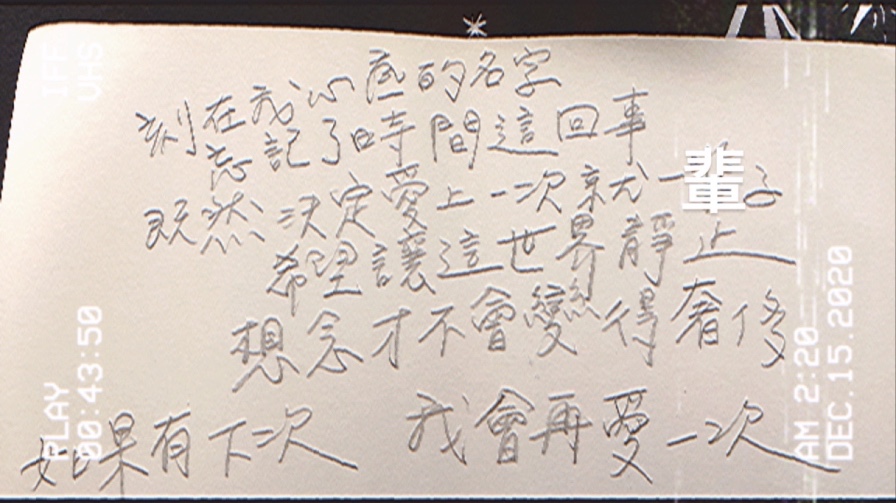 刻在我心底的名字
忘記了時間這回事
既然決定愛上一次就一輩子
希望讓這世界靜止
想念才不會變得奢侈
如果有下次 我會再愛一次
PLAY
00:43:50
AM 2:20
DEC.15.2020
VHS